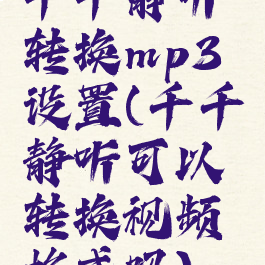 千千静听
转换mp3
设置(千千
静听可以
转换视频